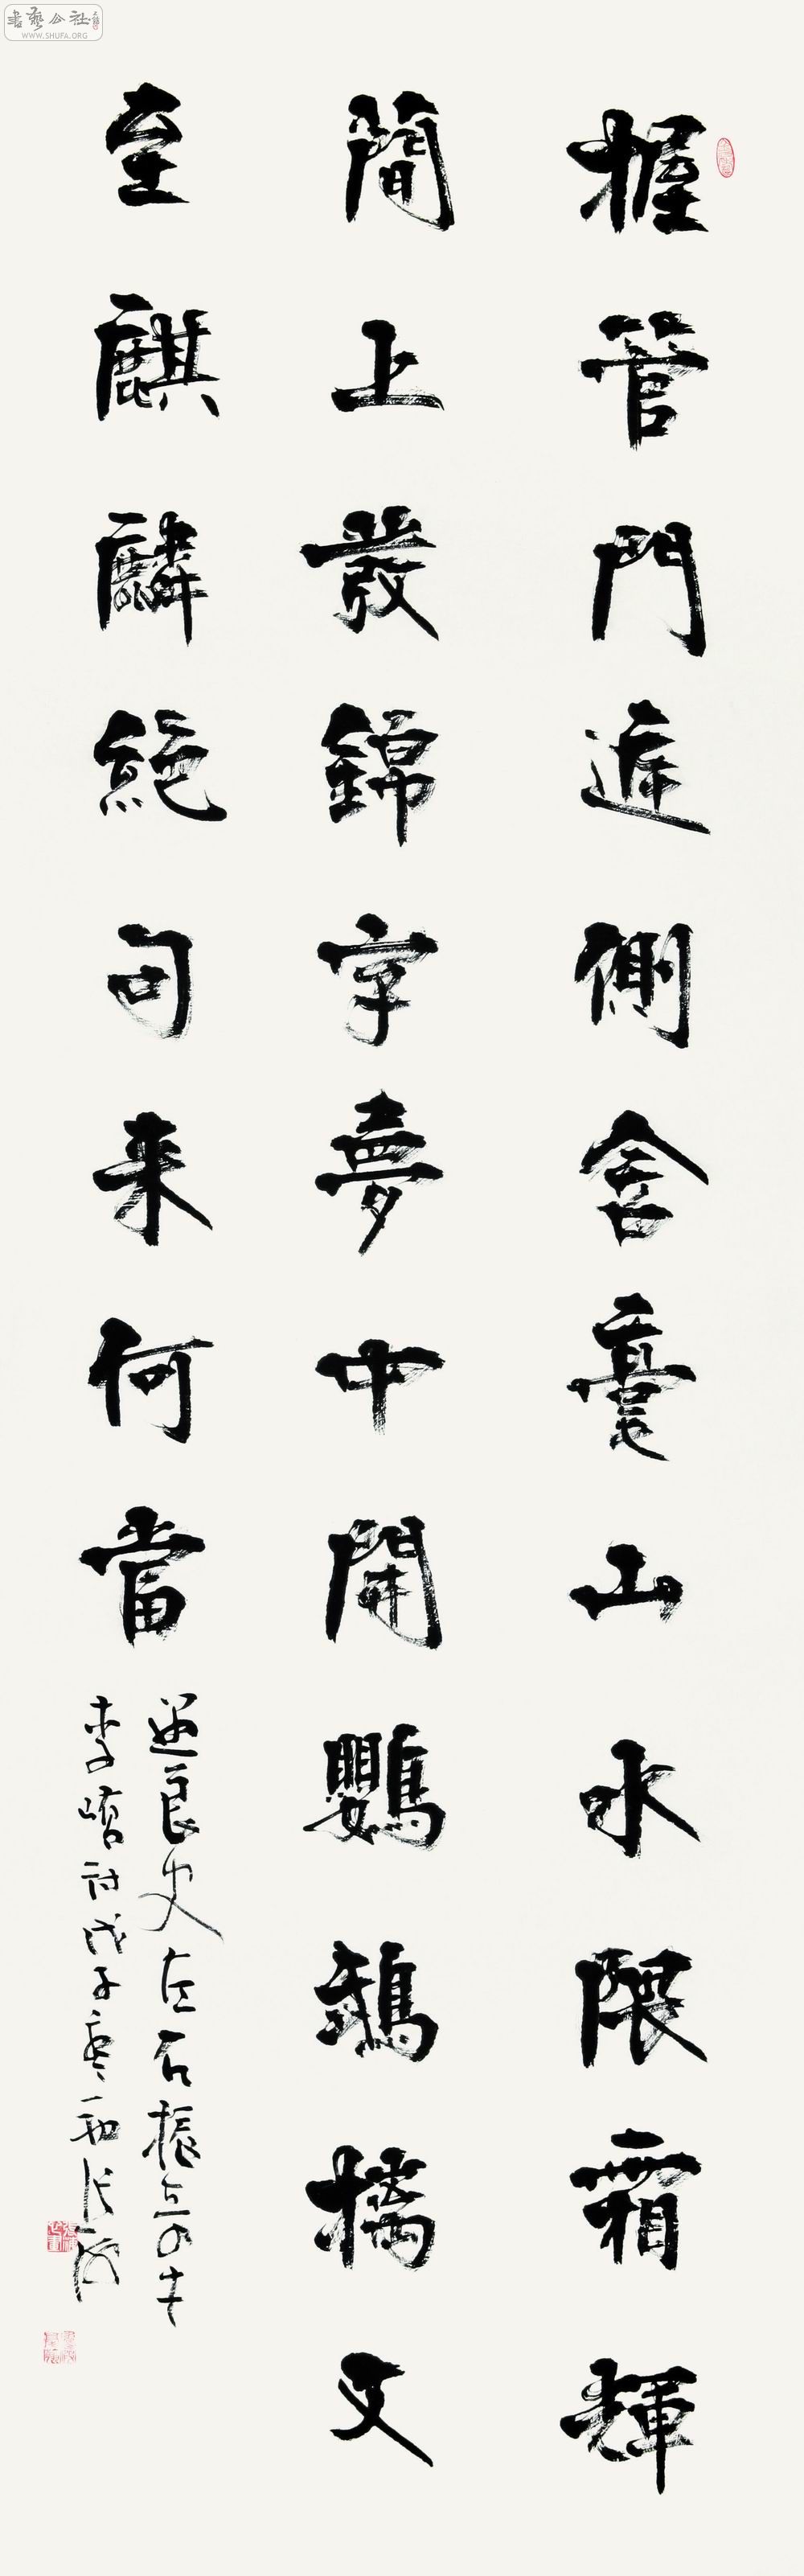 書藝公社
WWW.SHUFA.ORG
握管門庭側含毫山水隈霜輝
簡上發錦字夢中開鸚鵡摛文
至麒麟絕句来何當
遇良史左右振奇才
李嶠詩戊子